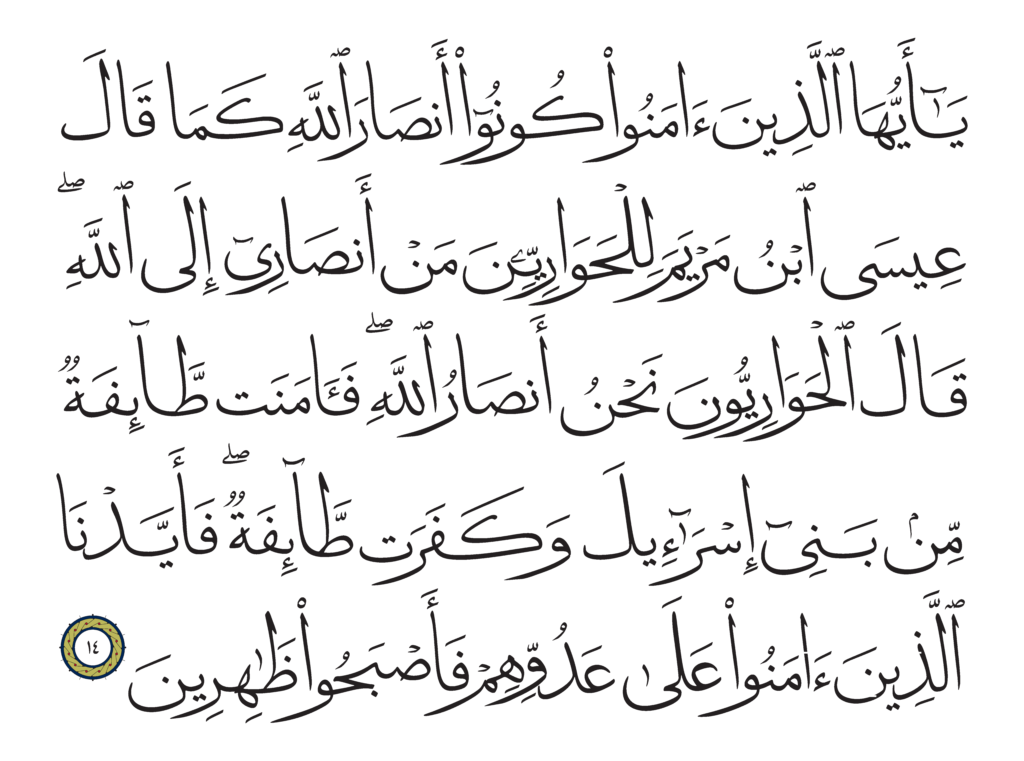 يَـٰٓأَيُّهَا ٱلَّذِينَ ءَامَنُوا۟ كُونُوٓا۟ أَنصَارَ ٱللَّهِ كَمَا قَالَ
عِيسَى ٱبْنُ مَرْيَمَ لِلْحَوَارِيِّـۧنَ مَنْ أَنصَارِىٓ إِلَى ٱللَّهِ ۖ
قَالَ ٱلْحَوَارِيُّونَ نَحْنُ أَنصَارُ ٱللَّهِ ۖ فَـَٔامَنَت طَّآئِفَةٌ
مِّنۢ بَنِىٓ إِسْرَٰٓءِيلَ وَكَفَرَت طَّآئِفَةٌ ۖ فَأَيَّدْنَا
ٱلَّذِينَ ءَامَنُوا۟ عَلَىٰ عَدُوِّهِمْ فَأَصْبَحُوا۟ ظَـٰهِرِينَ ١٤